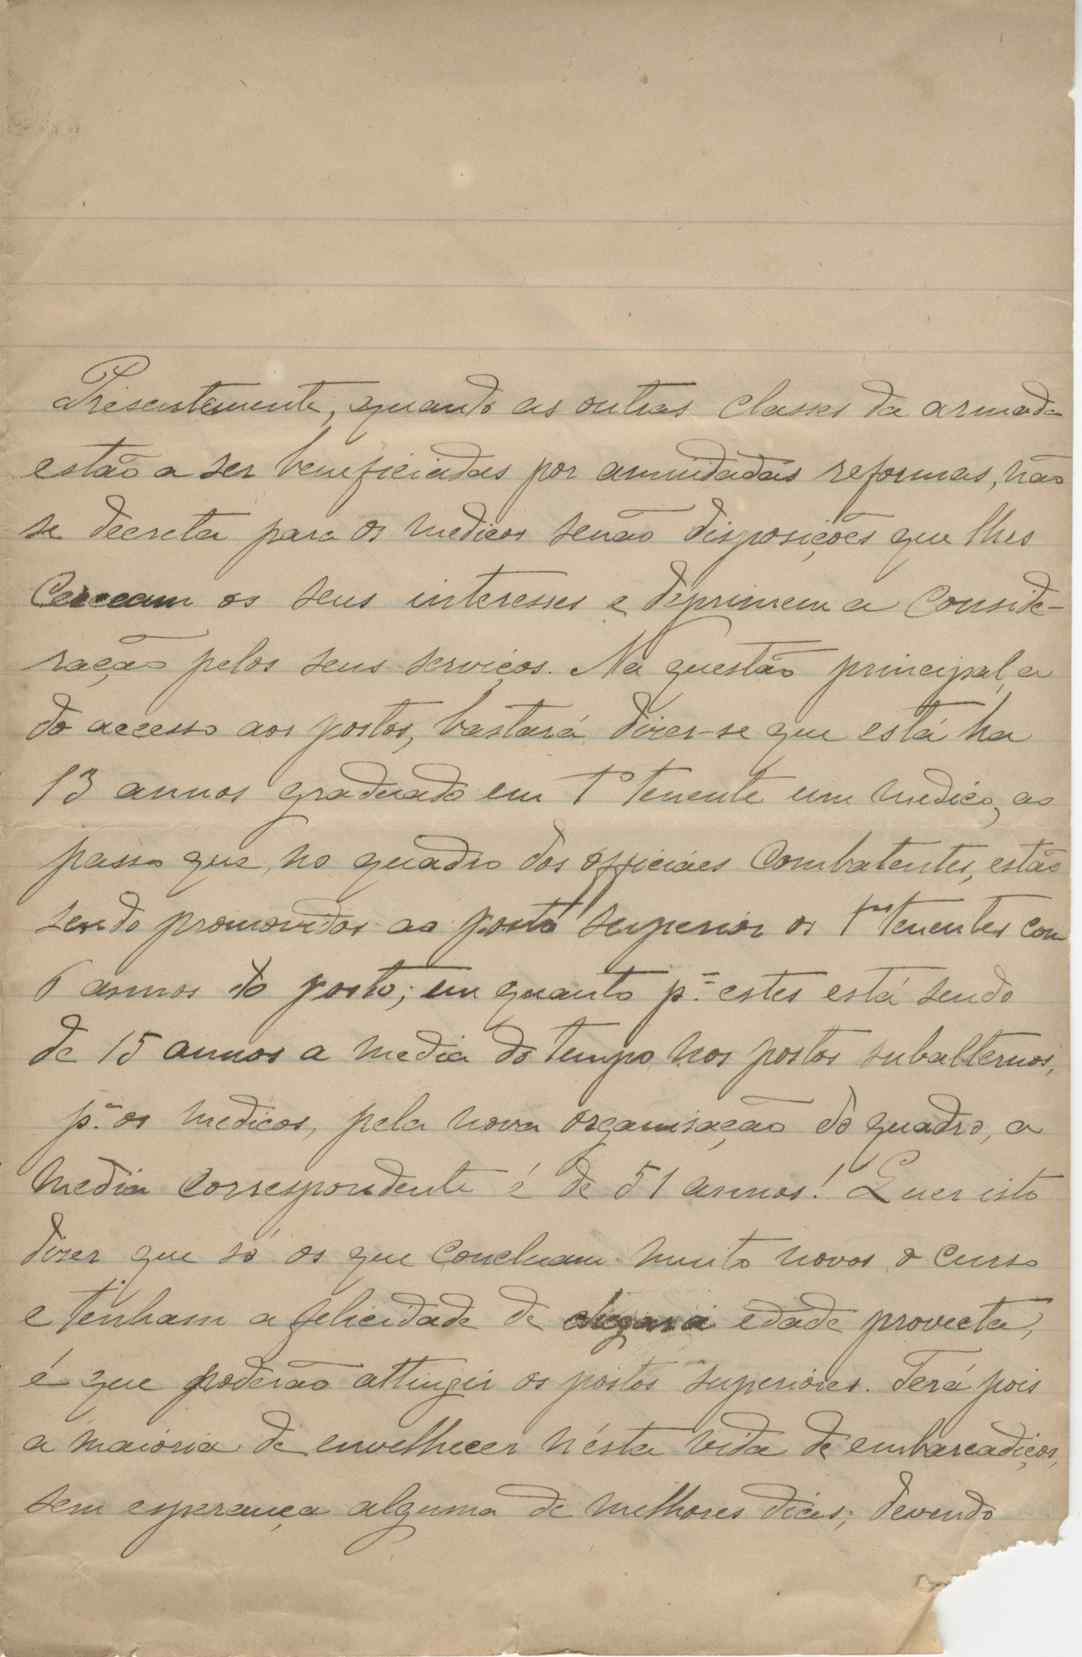 Presentemente, quando as outras classes da armada
estão a ser beneficiadas por amiudadas reformas, não
se decreta para os medicos senão disposições que lhes
cerceam os seus interesses e deprimem a conside-
ração pelos seus serviços. Na questão principal, a
do accesso aos postos, bastará dizer-se que está ha
13 annos graduado em 1º tenente um medico, ao
passo que, no quadro dos officiaes combatentes, estão
sendo promovidos ao posto superior os 1ºs tenentes com
6 annos do posto; em quanto pª estes está sendo
de 15 annos a media do tempo nos postos subalternos,
pª os medicos, pela nova organisação do quadro, a
media correspondente é de 51 annos! Quer isto
dizer que só os que concluam muito novos o curso
e tenham a felicidade de chegar á edade provecta,
é que poderão attingir os postos superiores. Terá pois
a maioria de envelhecer n'ésta vida de embarcadiços,
sem esperança alguma de melhores dias; devendo